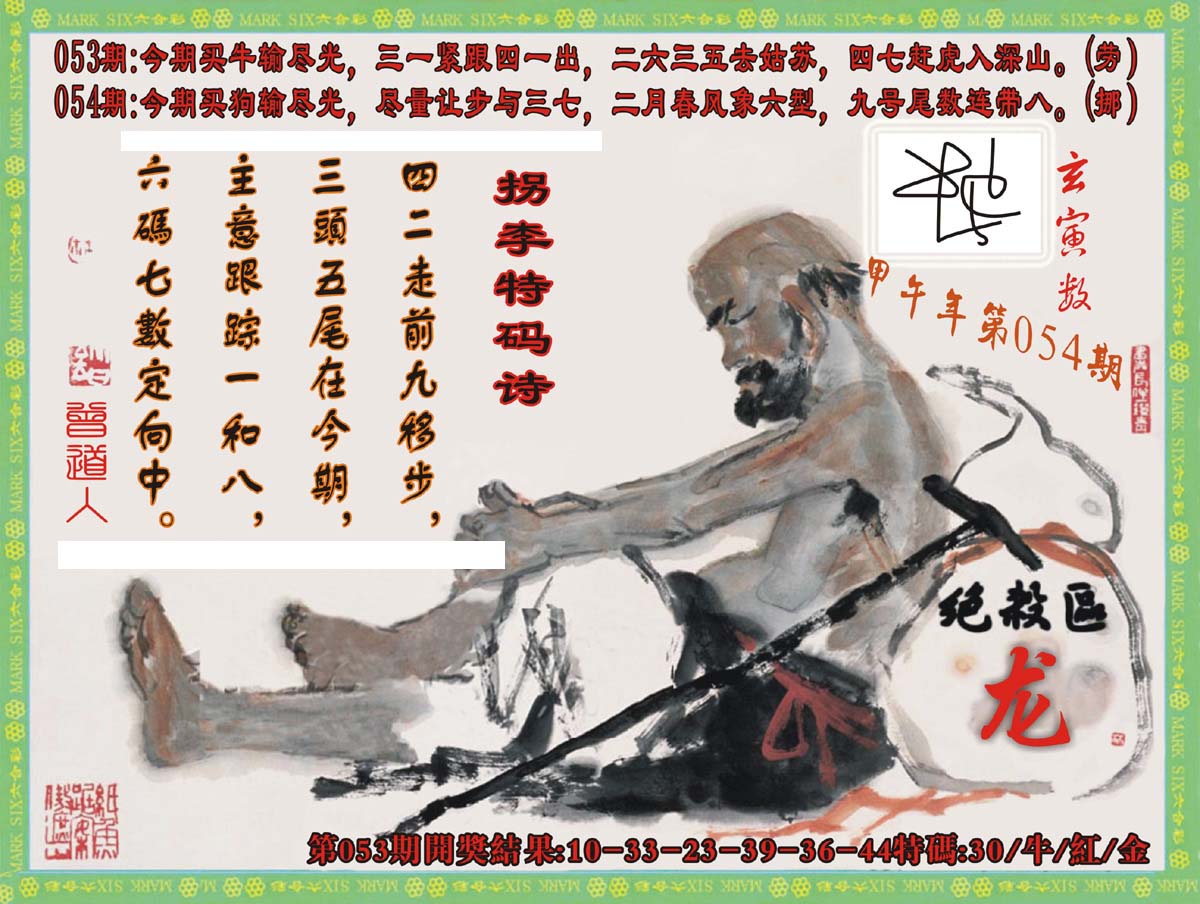 MARK SIX六合彩 MARK SIX六合彩 MARK SIX六合彩 MARK SIX六合彩 MARK SIX六合彩 MARK SIX六合彩
053期:今期买牛输尽光，三一紧跟四一出，二六三五去姑苏，四七赶虎入深山。(劳)
054期:今期买狗输尽光，尽量让步与三七，二月春风象六型，九号尾数连带八。(挪)
玄寅数
甲午年第054期
拐李特码诗
四二走前九移步，
三頭五尾在今期，
主意跟踪一和八，
六碼七數定向中。
曾道人
绝殺區
龙
第053期開獎結果:10-33-23-39-36-44特碼:30/牛/紅/金